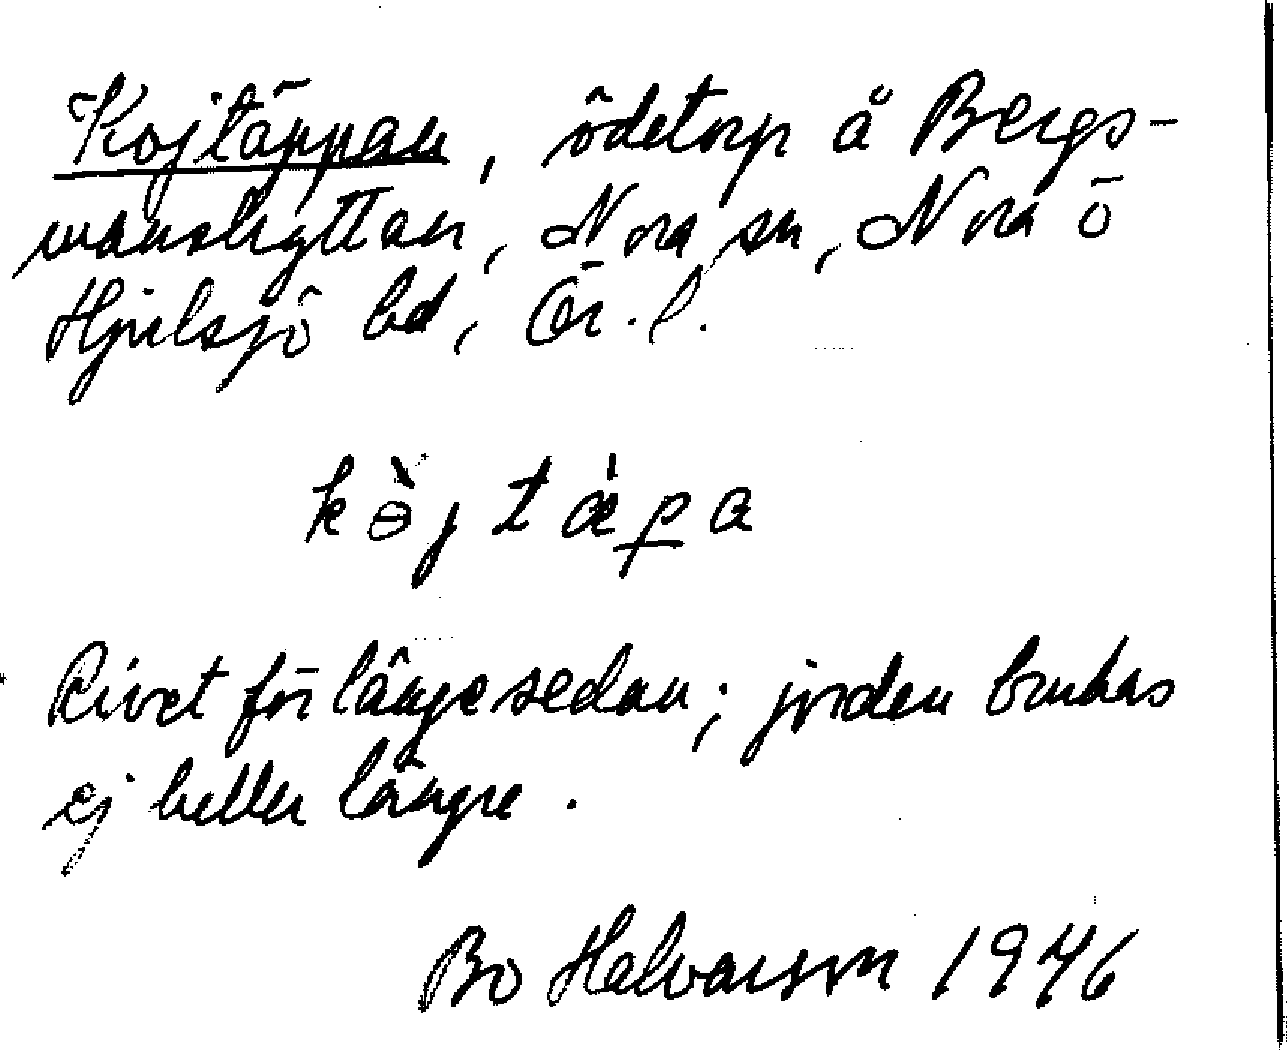 Kojtäppan, ödetorp å Bergs-
manshyttan, Nora sn, Nora o
Hjulsjö bd, Ör. l.
kɵ̀jtæ̀pa
Rivet för länge sedan; jorden brukas
ej heller längre.
Bo Helvarson 1946